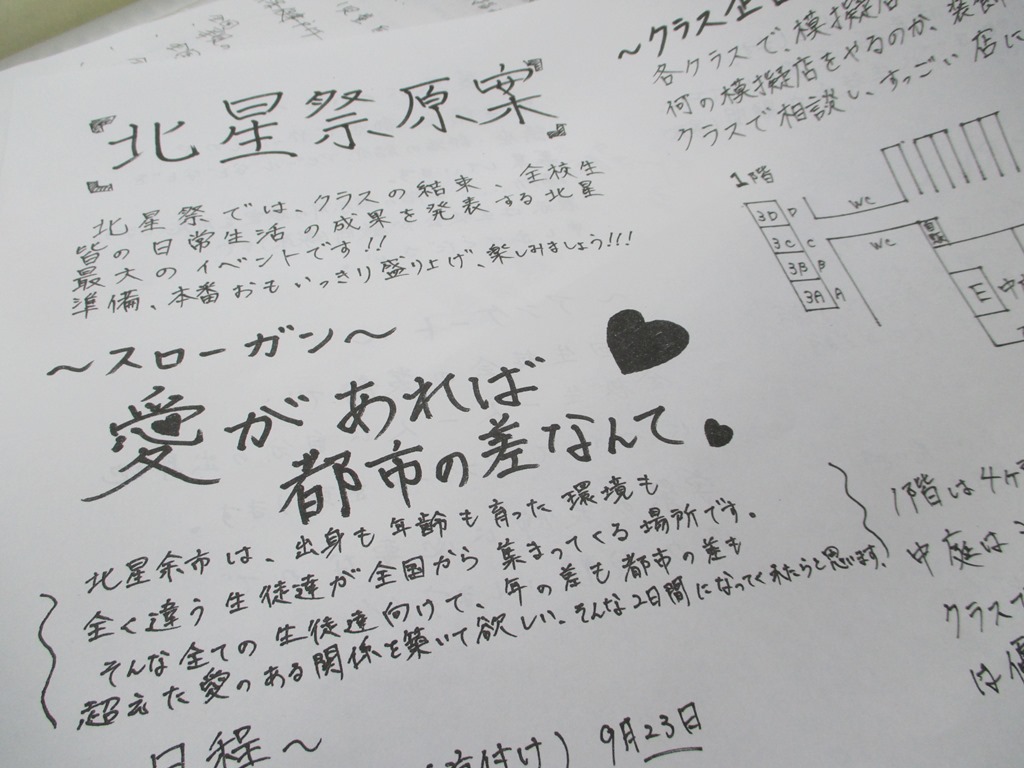 『北星祭原案』
北星祭では、クラスの結束、全校生
皆の日常生活の成果を発表する北星
最大のイベントです!!
準備、本番おもいっきり盛り上げ、楽しみましょう!!!
〜スローガン〜
愛があれば
都市の差なんて
北星余市は、出身も年齢も育った環境も
全く違う生徒達が全国から集まってくる場所です。
そんな全ての生徒達向けて、年の差も都市の差も
超えた愛のある関係を築いて欲しい、そんな2日間になってくれたらと思います。
日程〜
付け) 9月23日
〜クラス企
各クラスで、模擬店
何の模擬店をやるのか、装飾
クラスで相談し、すっごい店に
1階
WC
3D D
3C C
WC
3B B
3A A
E
中
1階は4ヶ
中庭は
クラスで
は優